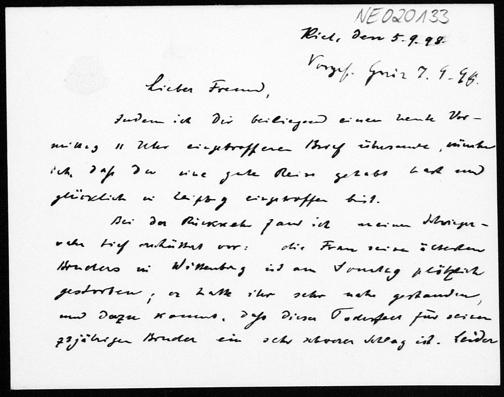 NE020133
Kiel, den 5.9.98.
Vorges. Graz 7.9.98.
Lieber Freund,
Indem ich Dir beiliegend einen heute Vor-
mittag 11 Uhr eingetroffenen Brief übersende, wünsche
ich, daß Du eine gute Reise gehabt hast und
glücklich in Leipzig eingetroffen bist.
Bei der Rückkehr fand ich meinen Schwieger-
vater tief erschüttert vor: die Frau seines ältesten
Bruders in Wittenberg ist am Sonntag plötzlich
gestorben; er hatte ihr sehr nahe gestanden,
und dazu kommt, daß dieser Todesfall für seinen
jährigen Bruder ein sehr schwerer Schlag ist. Leider